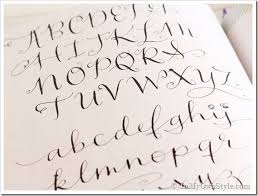 ABCDEFG
HIJKLM
NOPQRS
TUVWXYZ
abcdefghij
klmnopqr
xyz
InMyOwnStyle.com